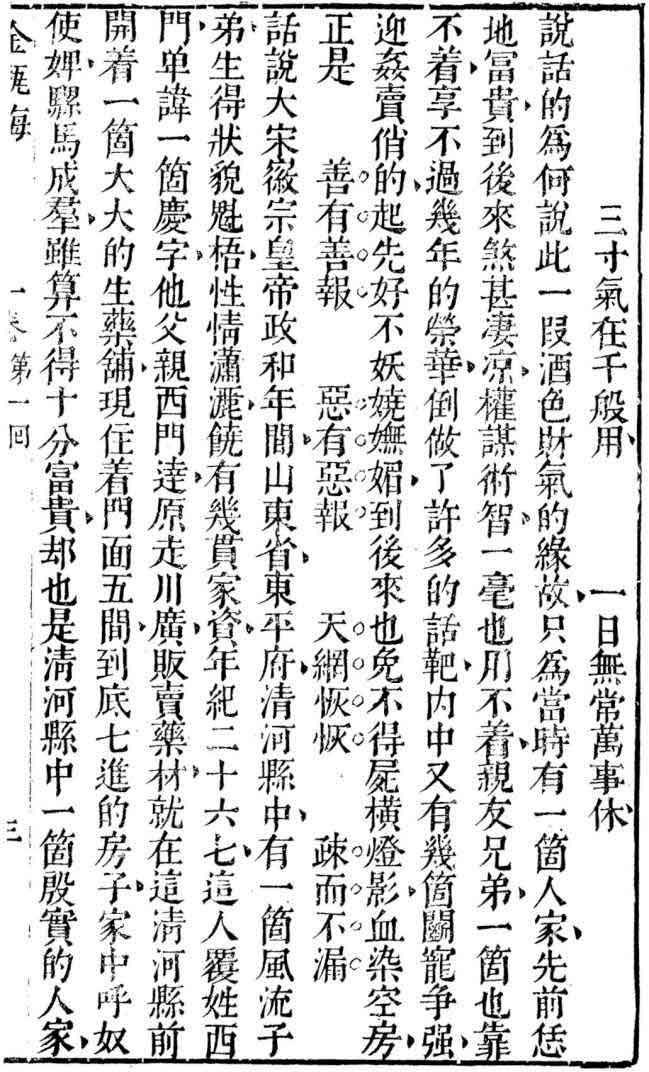 三寸氣在千般用　一日無常萬事休
說話的爲何說此一段酒色財氣的緣故只爲當時有一箇人家先前恁
地富貴到後來煞甚凄凉權謀術智一毫也用不着親友兄弟一箇也靠
不着享不過幾年的榮華倒做了許多的話靶内中又有幾箇鬬寵争强
迎姦賣俏的起先好不妖嬈嫵媚到後來也免不得屍橫燈影血染空房
正是　善有善報　惡有惡報　天網恢恢　疎而不漏
話說大宋徽宗皇帝政和年間山東省東平府清河縣中有一箇風流子
弟生得狀貌魁梧性情瀟灑饒有幾貫家資年紀二十六七這人覆姓西
門单諱一箇慶字他父親西門達原走川廣販賣藥材就在這清河縣前
開着一箇大大的生藥舖現住着門面五間到底七進的房子家中呼奴
使婢騾馬成羣雖算不得十分富貴却也是清河縣中一箇殷實的人家
金瓶梅　一卷第一回　三